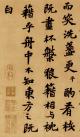 而笑洗盞更酌肴
既盡杯盤狼籍相與枕
藉乎舟中不知東方之既
白